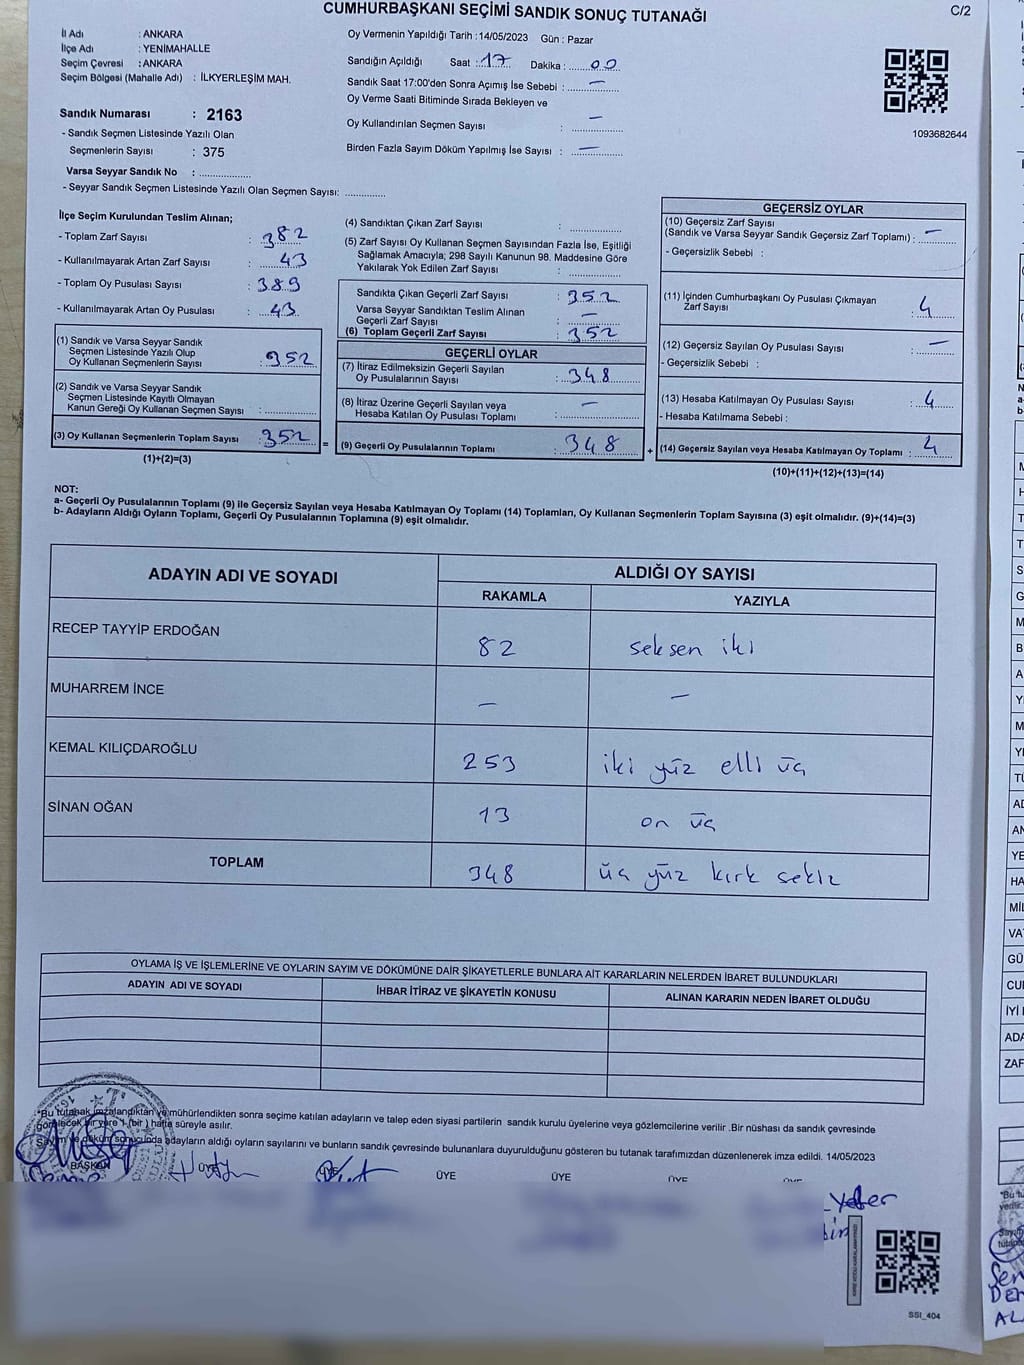 CUMHURBAŞKANI SEÇİMİ SANDIK SONUÇ TUTANAĞI
C/2
İl Adı : ANKARA
İlçe Adı : YENİMAHALLE
Seçim Çevresi : ANKARA
Seçim Bölgesi (Mahalle Adı) : İLKYERLEŞİM MAH.
Sandık Numarası : 2163
- Sandık Seçmen Listesinde Yazılı Olan
Seçmenlerin Sayısı : 375
Varsa Seyyar Sandık No : ...............
- Seyyar Sandık Seçmen Listesinde Yazılı Olan Seçmen Sayısı: ............
Oy Vermenin Yapıldığı Tarih :14/05/2023 Gün : Pazar
Sandığın Açıldığı Saat : 17 Dakika : 00
Sandık Saat 17:00'den Sonra Açımış İse Sebebi : —
Oy Verme Saati Bitiminde Sırada Bekleyen ve
Oy Kullandırılan Seçmen Sayısı : —
Birden Fazla Sayım Döküm Yapılmış İse Sayısı : —
1093682644
İlçe Seçim Kurulundan Teslim Alınan;
- Toplam Zarf Sayısı : 382
- Kullanılmayarak Artan Zarf Sayısı : 43
- Toplam Oy Pusulası Sayısı : 389
- Kullanılmayarak Artan Oy Pusulası : 43
(1) Sandık ve Varsa Seyyar Sandık
Seçmen Listesinde Yazılı Olup
Oy Kullanan Seçmenlerin Sayısı : 352
(2) Sandık ve Varsa Seyyar Sandık
Seçmen Listesinde Kayıtlı Olmayan
Kanun Gereği Oy Kullanan Seçmen Sayısı : ............
(3) Oy Kullanan Seçmenlerin Toplam Sayısı : 352 =
(1)+(2)=(3)
(4) Sandıktan Çıkan Zarf Sayısı : ............
(5) Zarf Sayısı Oy Kullanan Seçmen Sayısından Fazla İse, Eşitliği
Sağlamak Amacıyla; 298 Sayılı Kanunun 98. Maddesine Göre
Yakılarak Yok Edilen Zarf Sayısı : ............
Sandıkta Çıkan Geçerli Zarf Sayısı : 352
Varsa Seyyar Sandıktan Teslim Alınan
Geçerli Zarf Sayısı : —
(6) Toplam Geçerli Zarf Sayısı : 352
GEÇERLİ OYLAR
(7) İtiraz Edilmeksizin Geçerli Sayılan
Oy Pusulalarının Sayısı : 348
(8) İtiraz Üzerine Geçerli Sayılan veya
Hesaba Katılan Oy Pusulası Toplamı : —
(9) Geçerli Oy Pusulalarının Toplamı : 348 +
GEÇERSİZ OYLAR
(10) Geçersiz Zarf Sayısı
(Sandık ve Varsa Seyyar Sandık Geçersiz Zarf Toplamı) : —
- Geçersizlik Sebebi :
(11) İçinden Cumhurbaşkanı Oy Pusulası Çıkmayan
Zarf Sayısı : 4
(12) Geçersiz Sayılan Oy Pusulası Sayısı : —
- Geçersizlik Sebebi :
(13) Hesaba Katılmayan Oy Pusulası Sayısı : 4
- Hesaba Katılmama Sebebi :
(14) Geçersiz Sayılan veya Hesaba Katılmayan Oy Toplamı : 4
(10)+(11)+(12)+(13)=(14)
NOT:
a- Geçerli Oy Pusulalarının Toplamı (9) ile Geçersiz Sayılan veya Hesaba Katılmayan Oy Toplamı (14) Toplamları, Oy Kullanan Seçmenlerin Toplam Sayısına (3) eşit olmalıdır. (9)+(14)=(3)
b- Adayların Aldığı Oyların Toplamı, Geçerli Oy Pusulalarının Toplamına (9) eşit olmalıdır.
ADAYIN ADI VE SOYADI ALDIĞI OY SAYISI
RAKAMLA YAZIYLA
RECEP TAYYİP ERDOĞAN 82 seksen iki
MUHARREM İNCE — —
KEMAL KILIÇDAROĞLU 253 iki yüz elli üç
SİNAN OĞAN 13 on üç
TOPLAM 348 üç yüz kırk sekiz
OYLAMA İŞ VE İŞLEMLERİNE VE OYLARIN SAYIM VE DÖKÜMÜNE DAİR ŞİKAYETLERLE BUNLARA AİT KARARLARIN NELERDEN İBARET BULUNDUKLARI
ADAYIN ADI VE SOYADI İHBAR İTİRAZ VE ŞİKAYETİN KONUSU ALINAN KARARIN NEDEN İBARET OLDUĞU
*Bu tutanak imzalandıktan ve mühürlendikten sonra seçime katılan adayların ve talep eden siyasi partilerin sandık kurulu üyelerine veya gözlemcilerine verilir .Bir nüshası da sandık çevresinde
görülecek bir yere 1 (bir ) hafta süreyle asılır.
Sayım ve döküm sonucunda adayların aldığı oyların sayılarını ve bunların sandık çevresinde bulunanlara duyurulduğunu gösteren bu tutanak tarafımızdan düzenlenerek imza edildi. 14/05/2023
BAŞKAN ÜYE ÜYE ÜYE ÜYE ÜYE ÜYE
Yeter
SSI_404